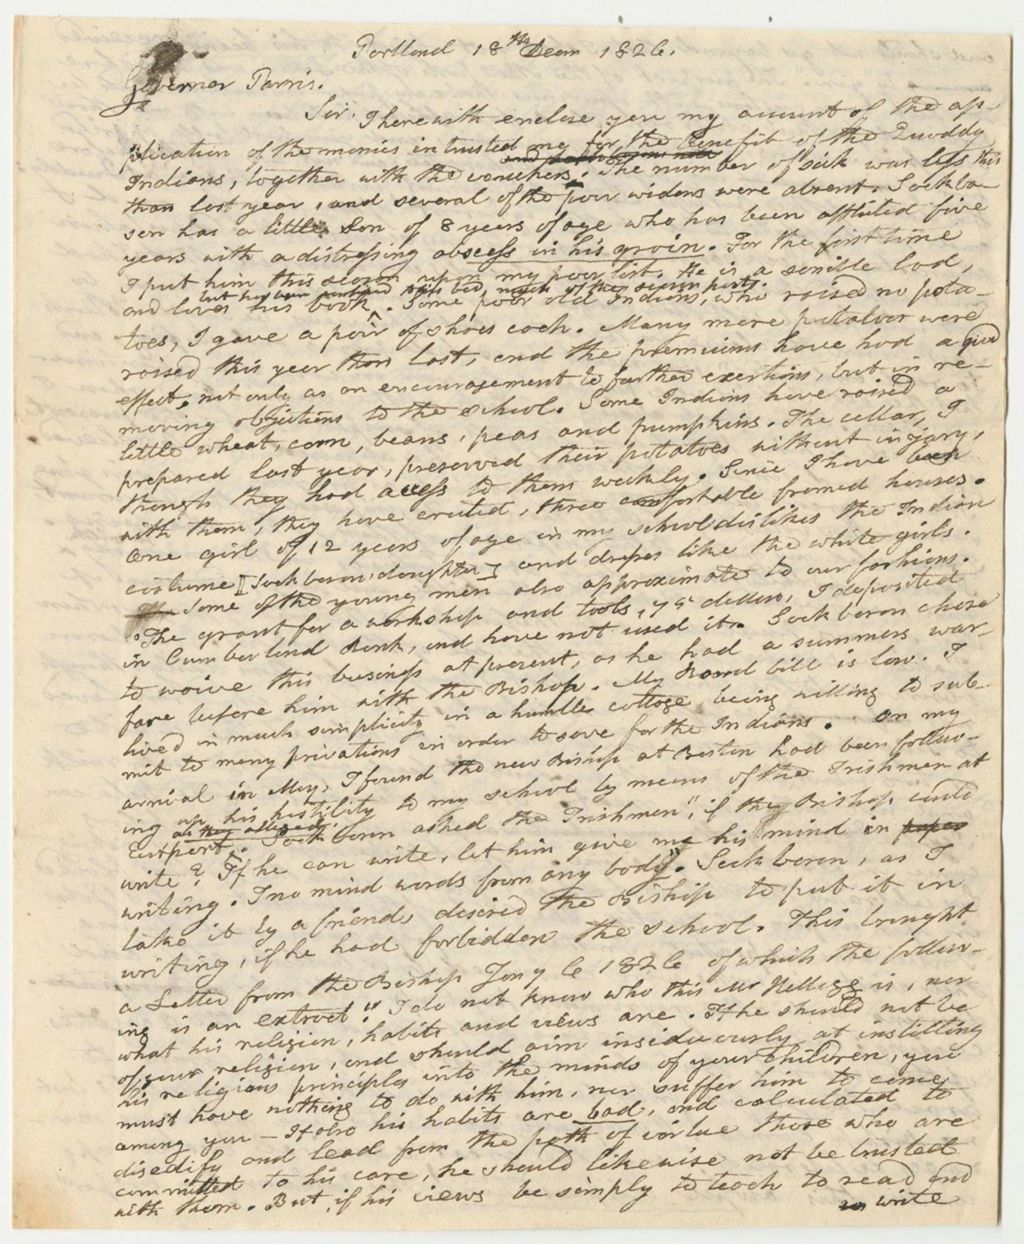 Portland 18th Decm 1826.
Governor Parris.
Sir. I herewith enclose you my account of the ap-
plication of the monies intrusted me for the benefit of the Quoddy
Indians, together with the vouchers. The number of sick was less this
than last year, and several of the poor widows were absent. Sockba-
son has a little son of 8 years of age who has been afflicted five
years with a distressing abscess in his groin. For the first time
I put him this season upon my poor list. He is a sensible lad,
but has been confined to his bed, much of the season past.
and loves his book. Some poor old Indians, who raised no pota-
toes, I gave a pair of shoes each. Many more potatoes were
raised this year than last, and the premiums have had a good
effect, not only as an encouragement to farther exertions, but in re-
moving objections to the school. Some Indians have raised a
little wheat, corn, beans, peas and pumpkins. The cellar, I
prepared last year, preserved their potatoes without injury,
though they had access to them weekly. Since I have been
with them, they have erected, three comfortable framed houses.
One girl of 12 years of age in my school dislikes the Indian
costume [Sockbason's daughter] and dresses like the white girls.
Some of the young men also approximate to our fashions.
The grant for a workshop and tools, 75 dollars, I deposited
in Cumberland Bank, and have not used it. Sockbason chose
to waive this business at present, as he had a summers war-
fare before him with the Bishop. My Board bill is low. I
lived in much simplicity in a humble cottage being willing to sub-
mit to many privations in order to save for the Indians. On my
arrival in May, I found the new Bishop at Boston had been follow-
ing up his hostility to my school by means of the Irishmen at
Eastport. as they alleged. Sockbason asked the Irishmen, "if the Bishop could
write? If he can write, let him give me his mind in
writing. I no mind words from any body". Sockbason, as I
take it by a friend, desired the Bishop to put it in
writing, if he had forbidden the school. This brought
a Letter from the Bishop Jany 6 1826 of which the follow-
ing is an extract. "I do not know who this Mr Kellogg is, nor
what his religion, habits and views are. If he should not be
of your religion, and should aim insiduously at instilling
his religious principles into the minds of your children, you
must have nothing to do with him, nor suffer him to come
among you — If also his habits are bad, and calculated to
disedify and lead from the path of virtue those who are
committed to his care, he should likewise not be trusted
with them. But, if his views be simply to teach to read and
to write